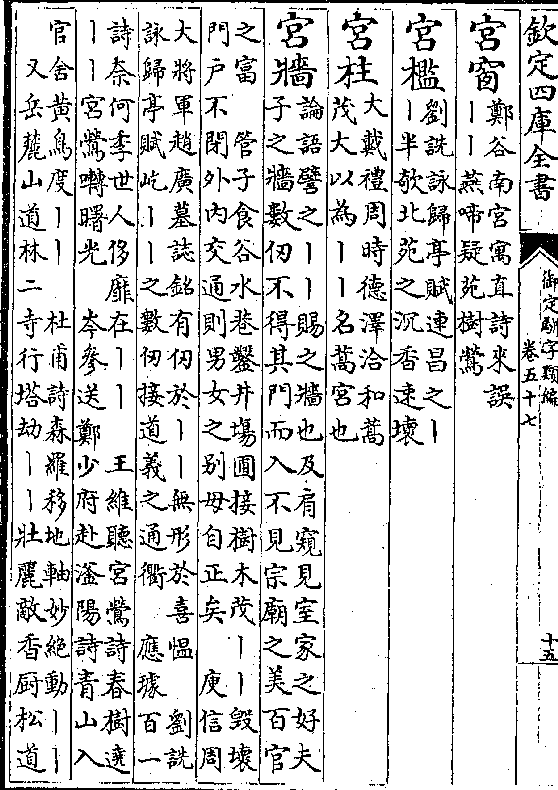 欽定四庫全書
御定駢字類編
卷五十七
十五
宮窗
鄭谷南宮寓直詩來誤
丨丨燕啼疑苑樹鶯
宮檻
劉詵詠歸亭賦連昌之丨
丨半欹北苑之沉香速壞
宮柱
大戴禮周時德澤洽和蒿
茂大以為丨丨名蒿宮也
宮牆
論語譬之丨丨賜之牆也及肩窺見室家之好夫
子之牆數仞不得其門而入不見宗廟之美百官
之富 管子食谷水巷鑿井塲圃接樹木茂丨丨毀壞
門户不閉外内交通則男女之别毋自正矣 庾信周
大將軍趙廣墓誌銘有仞於丨丨無形於喜愠 劉詵
詠歸亭賦屹丨丨之數仞接道義之通衢 應璩百一
詩奈何季世人侈靡在丨丨 王維聽宮鶯詩春樹遶
丨丨宮鶯囀曙光 岑參送鄭少府赴滏陽詩青山入
官舍黄鳥度丨丨 杜甫詩森羅移地軸妙絶動丨丨
又岳麓山道林二寺行塔劫丨丨壯麗敵香厨松道